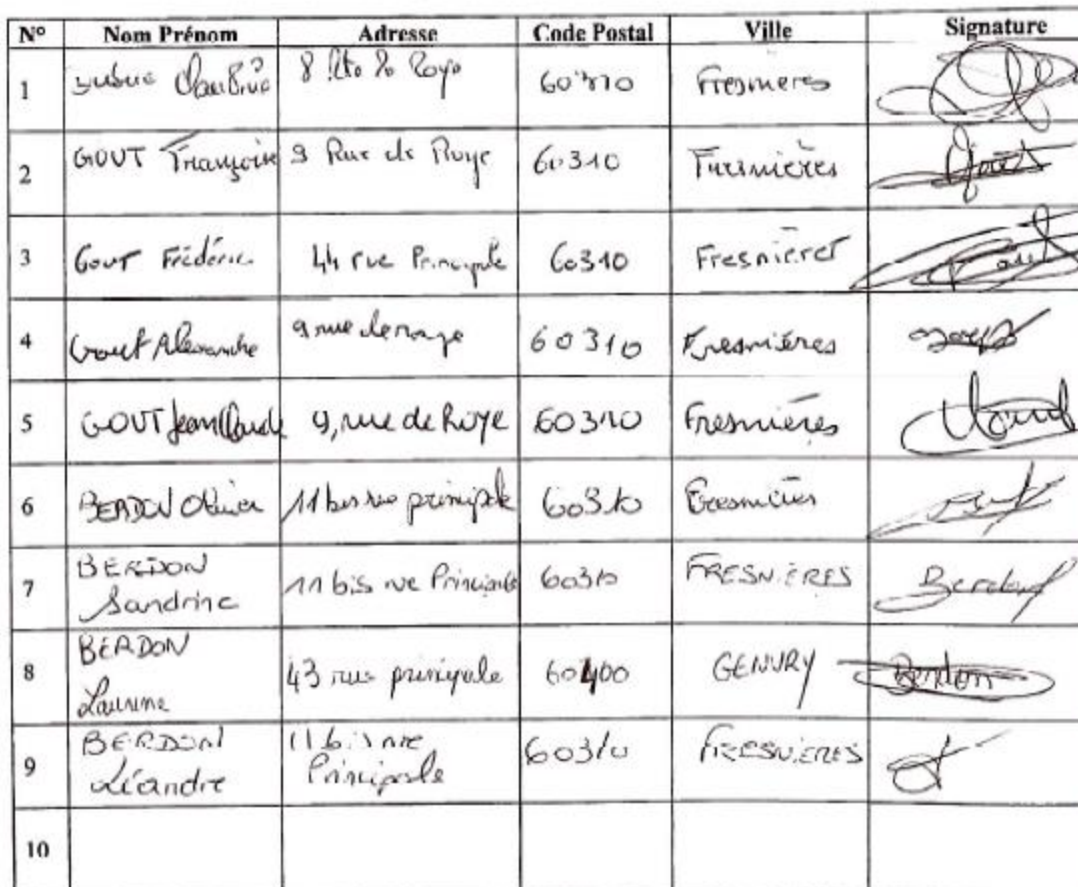 N° Nom Prénom Adresse Code Postal Ville Signature
1 8 Roye 60310 Fresnières
2 GOUT Françoise 9 Rue de Roye 60310 Fresnières
3 Gout Frédéric 44 rue Principale 60310 Fresnières
4 Gout Alexandre 9 rue de roye 60310 Fresnières
5 GOUT Jean Claude 9, rue de Roye 60310 Fresnières
6 BERDON Olivier 11 bis rue principale 60310 Fresnières
7 BERDON 11 bis rue Principale 60310 FRESNIERES Berdon
Sandrine
8 BERDON 43 rue principale 60400 GENVRY Berdon
Laurine
9 BERDON 11 bis rue 60310 FRESNIERES
Léandre Principale
10